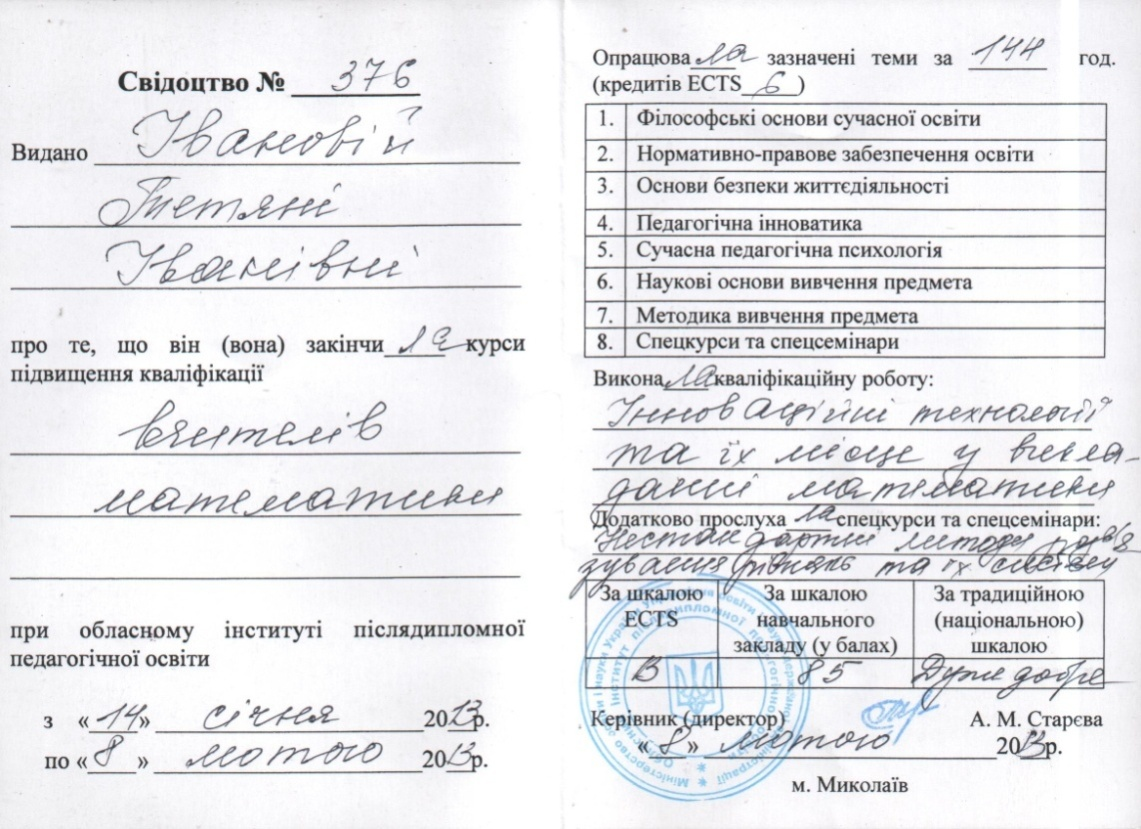 Свідоцтво № 376
Видано Івановій
Тетяні
Іванівні
про те, що він (вона) закінчила курси
підвищення кваліфікації
вчителів
математики
при обласному інституті післядипломної
педагогічної освіти
з «14» січня 2013р.
по «8» лютого 2013р.
Опрацювала зазначені теми за 144 год.
(кредитів ECTS 6)
1. Філософські основи сучасної освіти
2. Нормативно-правове забезпечення освіти
3. Основи безпеки життєдіяльності
4. Педагогічна інноватика
5. Сучасна педагогічна психологія
6. Наукові основи вивчення предмета
7. Методика вивчення предмета
8. Спецкурси та спецсемінари
Виконала кваліфікаційну роботу:
Інноваційні технології
та їх місце у викла-
данні математики
Додатково прослухала спецкурси та спецсемінари:
Нестандартні методи розв'я
зування рівнянь та їх систем
За шкалою ECTS
За шкалою навчального закладу (у балах)
За традиційною (національною) шкалою
B 85 Дуже добре
Керівник (директор) А. М. Старєва
«8» лютого 2013р.
м. Миколаїв